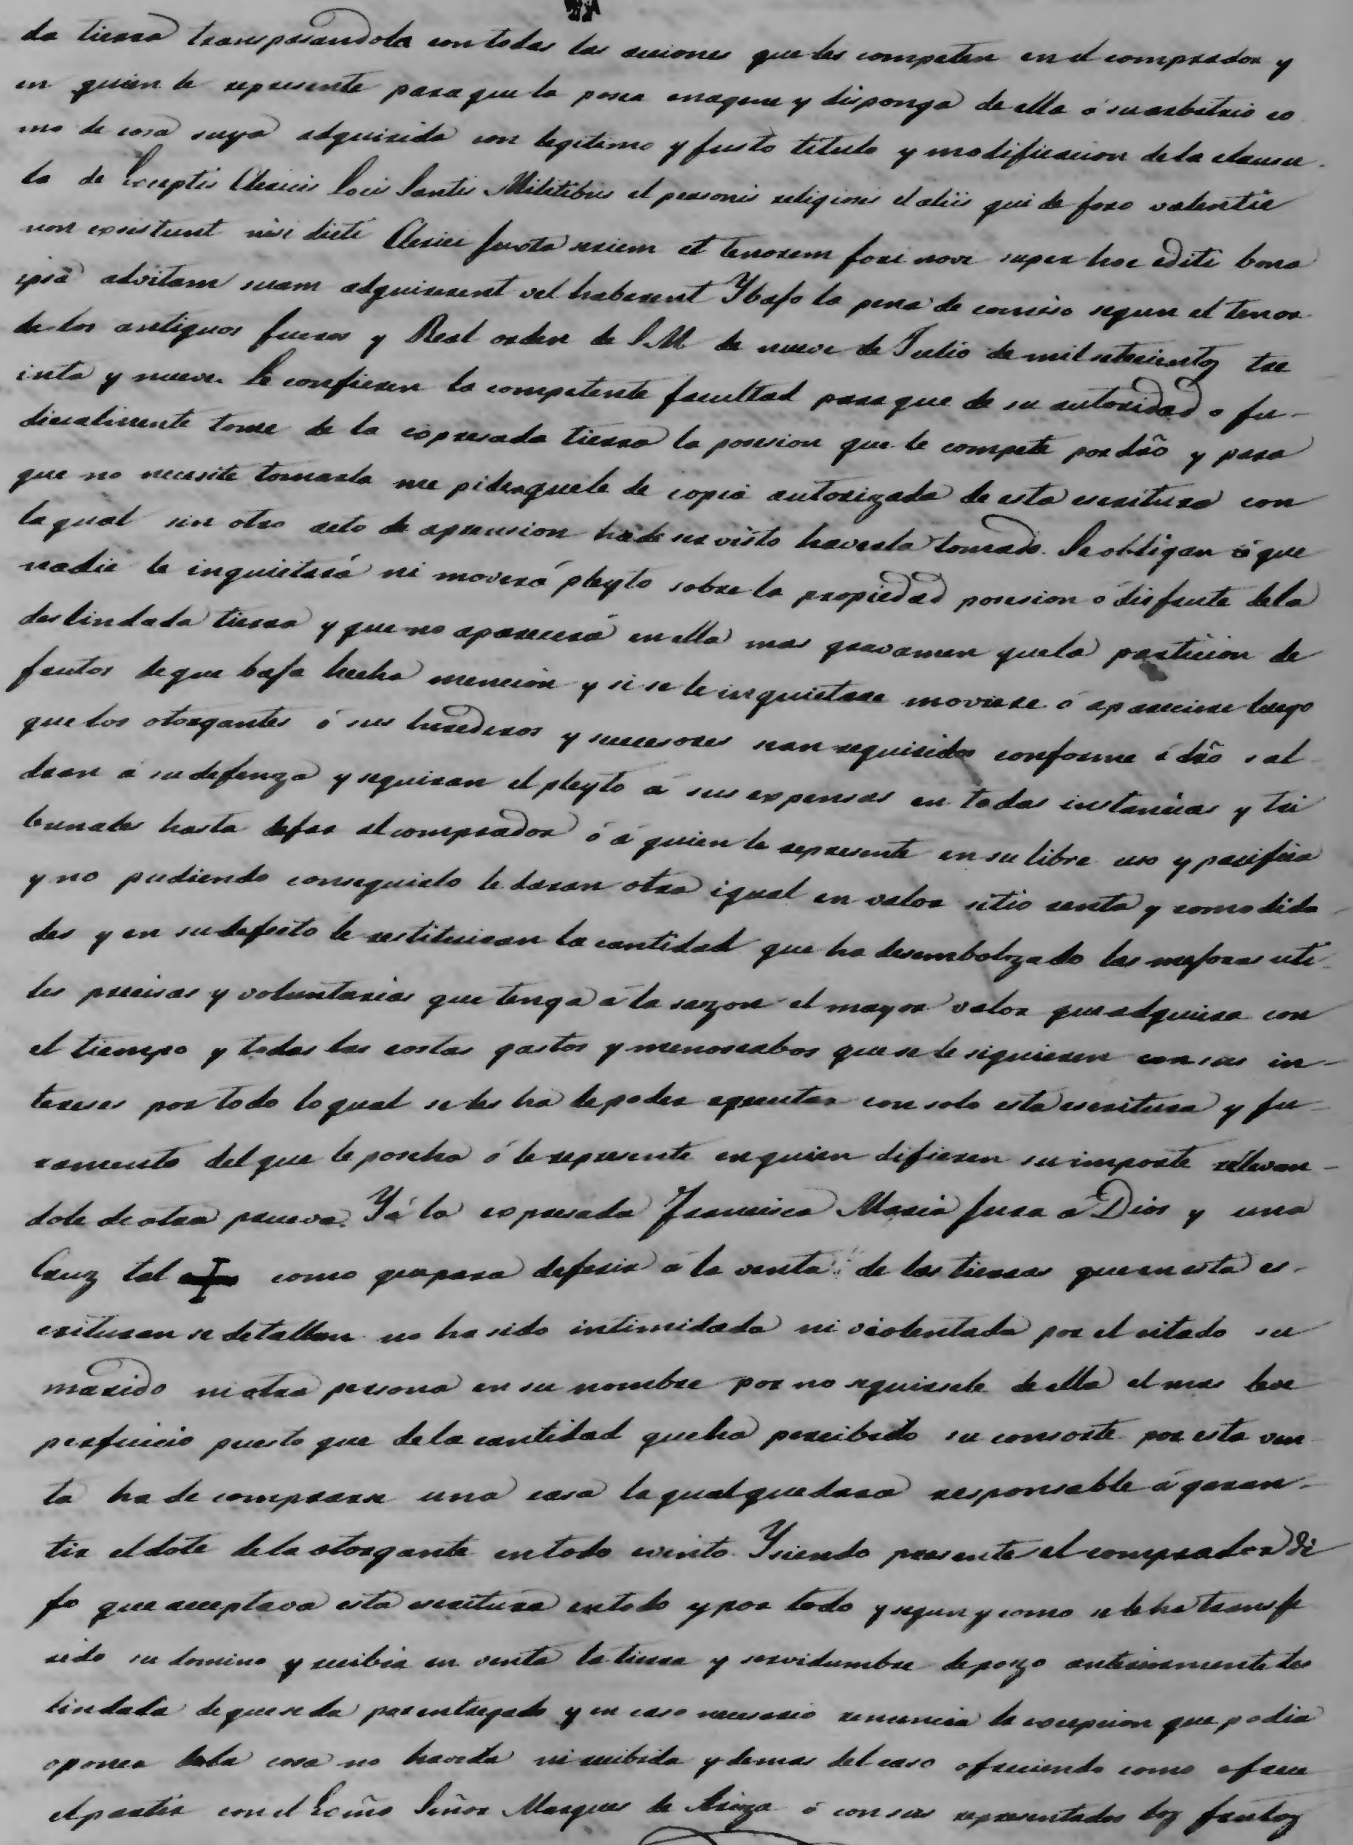 da tierra transpasandola con todas las acciones que les competen en el comprador y
en quien le represente para que la posea enagene y disponga de ella á su arbitrio co
mo de cosa suya adquirida con legitimo y justo titulo y modificacion de la clausu
la de Exceptis Clericis Locis Santis Militibus et personis religiosis et aliis qui de foro valentie
non existunt nisi dicti Clerici juxta seriem et tenorem fori novi super hoc editi bona
ipsa advitam suam adquirerent vel haberent Y bajo la pena de comiso segun el tenor
de los antiguos fueros y Real orden de S.M. de nueve de Julio de mil setecientos tre
inta y nueve. Le confieren la competente facultad para que de su autoridad o ju-
dicialmente tome de la expresada tierra la posesion que le compete por dro y para
que no necesite tomarla me piden que le de copia autorizada de esta escritura con
la qual sin otro acto de aprension ha de ser visto haverla tomado. Se obligan á que
nadie le inquietará ni moverá pleyto sobre la propiedad posesion ó disfrute de la
deslindada tierra y que no aparecerá en ella mas gravamen que la particion de
frutos de que baja hecha mencion y si se le inquietare moviere ó apareciere luego
que los otorgantes ó sus herederos y succesores sean requiridos conforme á dro sal
dran á su defenza y seguiran el pleyto á sus expensas en todas instancias y tri
bunales hasta dejar al comprador ó á quien le represente en su libre uso y pacifica
y no pudiendo conseguirlo le daran otra igual en valor sitio renta y comodida
des y en su defecto le restituiran la cantidad que ha desembolzado las mejoras uti-
les precisas y voluntarias que tenga á la sazon el mayor valor que adquiera con
el tiempo y todas las costas gastos y menoscabos que se le siguieren con sus in-
tereses por todo lo qual se les ha de poder egecutar con solo esta escritura y ju-
ramento del que le poseha ó le represente en quien difieren su importe relevan-
dole de otra prueva. Y á la expresada Francisca Maria jura á Dios y una
Cruz tal como que para deferir á la venta de las tierras que en esta es-
crituran se detallan no ha sido intimidada ni violentada por el citado su
marido ni otra persona en su nombre por no seguirsele de ella el mas leve
perjuicio puesto que de la cantidad que ha percibido su consorte por esta ven
ta ha de comprarse una casa la qual quedara responsable á garan-
tir el dote de la otorgante en todo evento. Y siendo presente el comprador di
jo que aceptava esta escritura en todo y por todo y segun y como se le ha transfe
rido su domino y recibia en venta la tierra y servidumbre de pozo anteriormente des
lindada de que se da por entregado y en caso necesario renuncia la excepcion que podia
oponer de la cosa no havida ni recibida y demas del caso ofreciendo como ofrece
el partir con el Ecmo Señor Marques de Ariza ó con sus representados los frutos